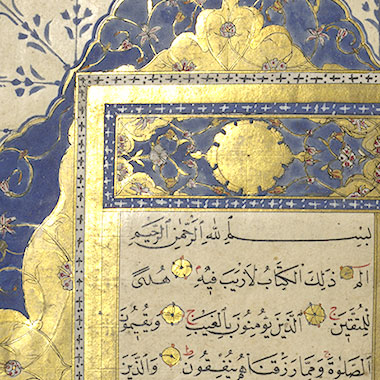 بِسْمِ اللهِ الرَّحْمٰنِ الرَّحِيمِ
الم ذٰلِكَ الْكِتَابُ لَا رَيْبَ فِيهِ هُدًى
لِلْمُتَّقِينَ الَّذِينَ يُؤْمِنُونَ بِالْغَيْبِ وَيُقِيمُونَ
الصَّلٰوةَ وَمِمَّا رَزَقْنَاهُمْ يُنْفِقُونَ وَالَّذِينَ